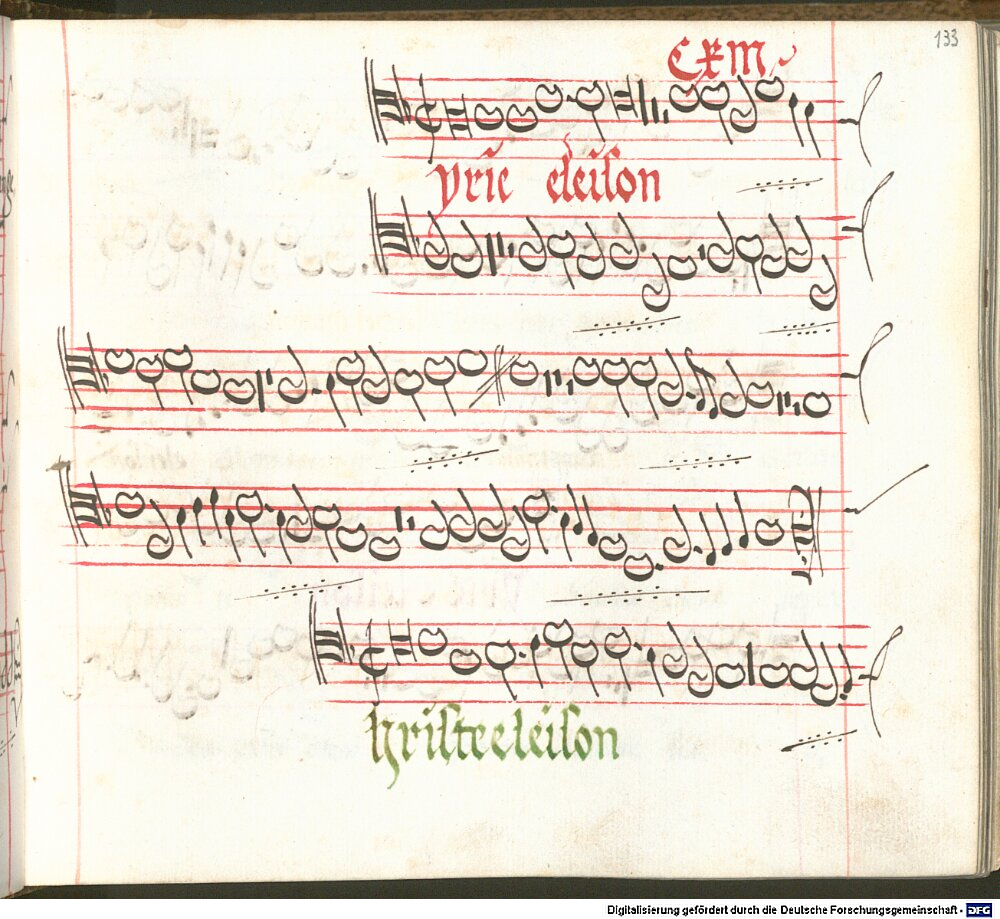 133
yrie eleison
hristeeleison
Digitalisierung gefördert durch die Deutsche Forschungsgemeinschaft - DFG